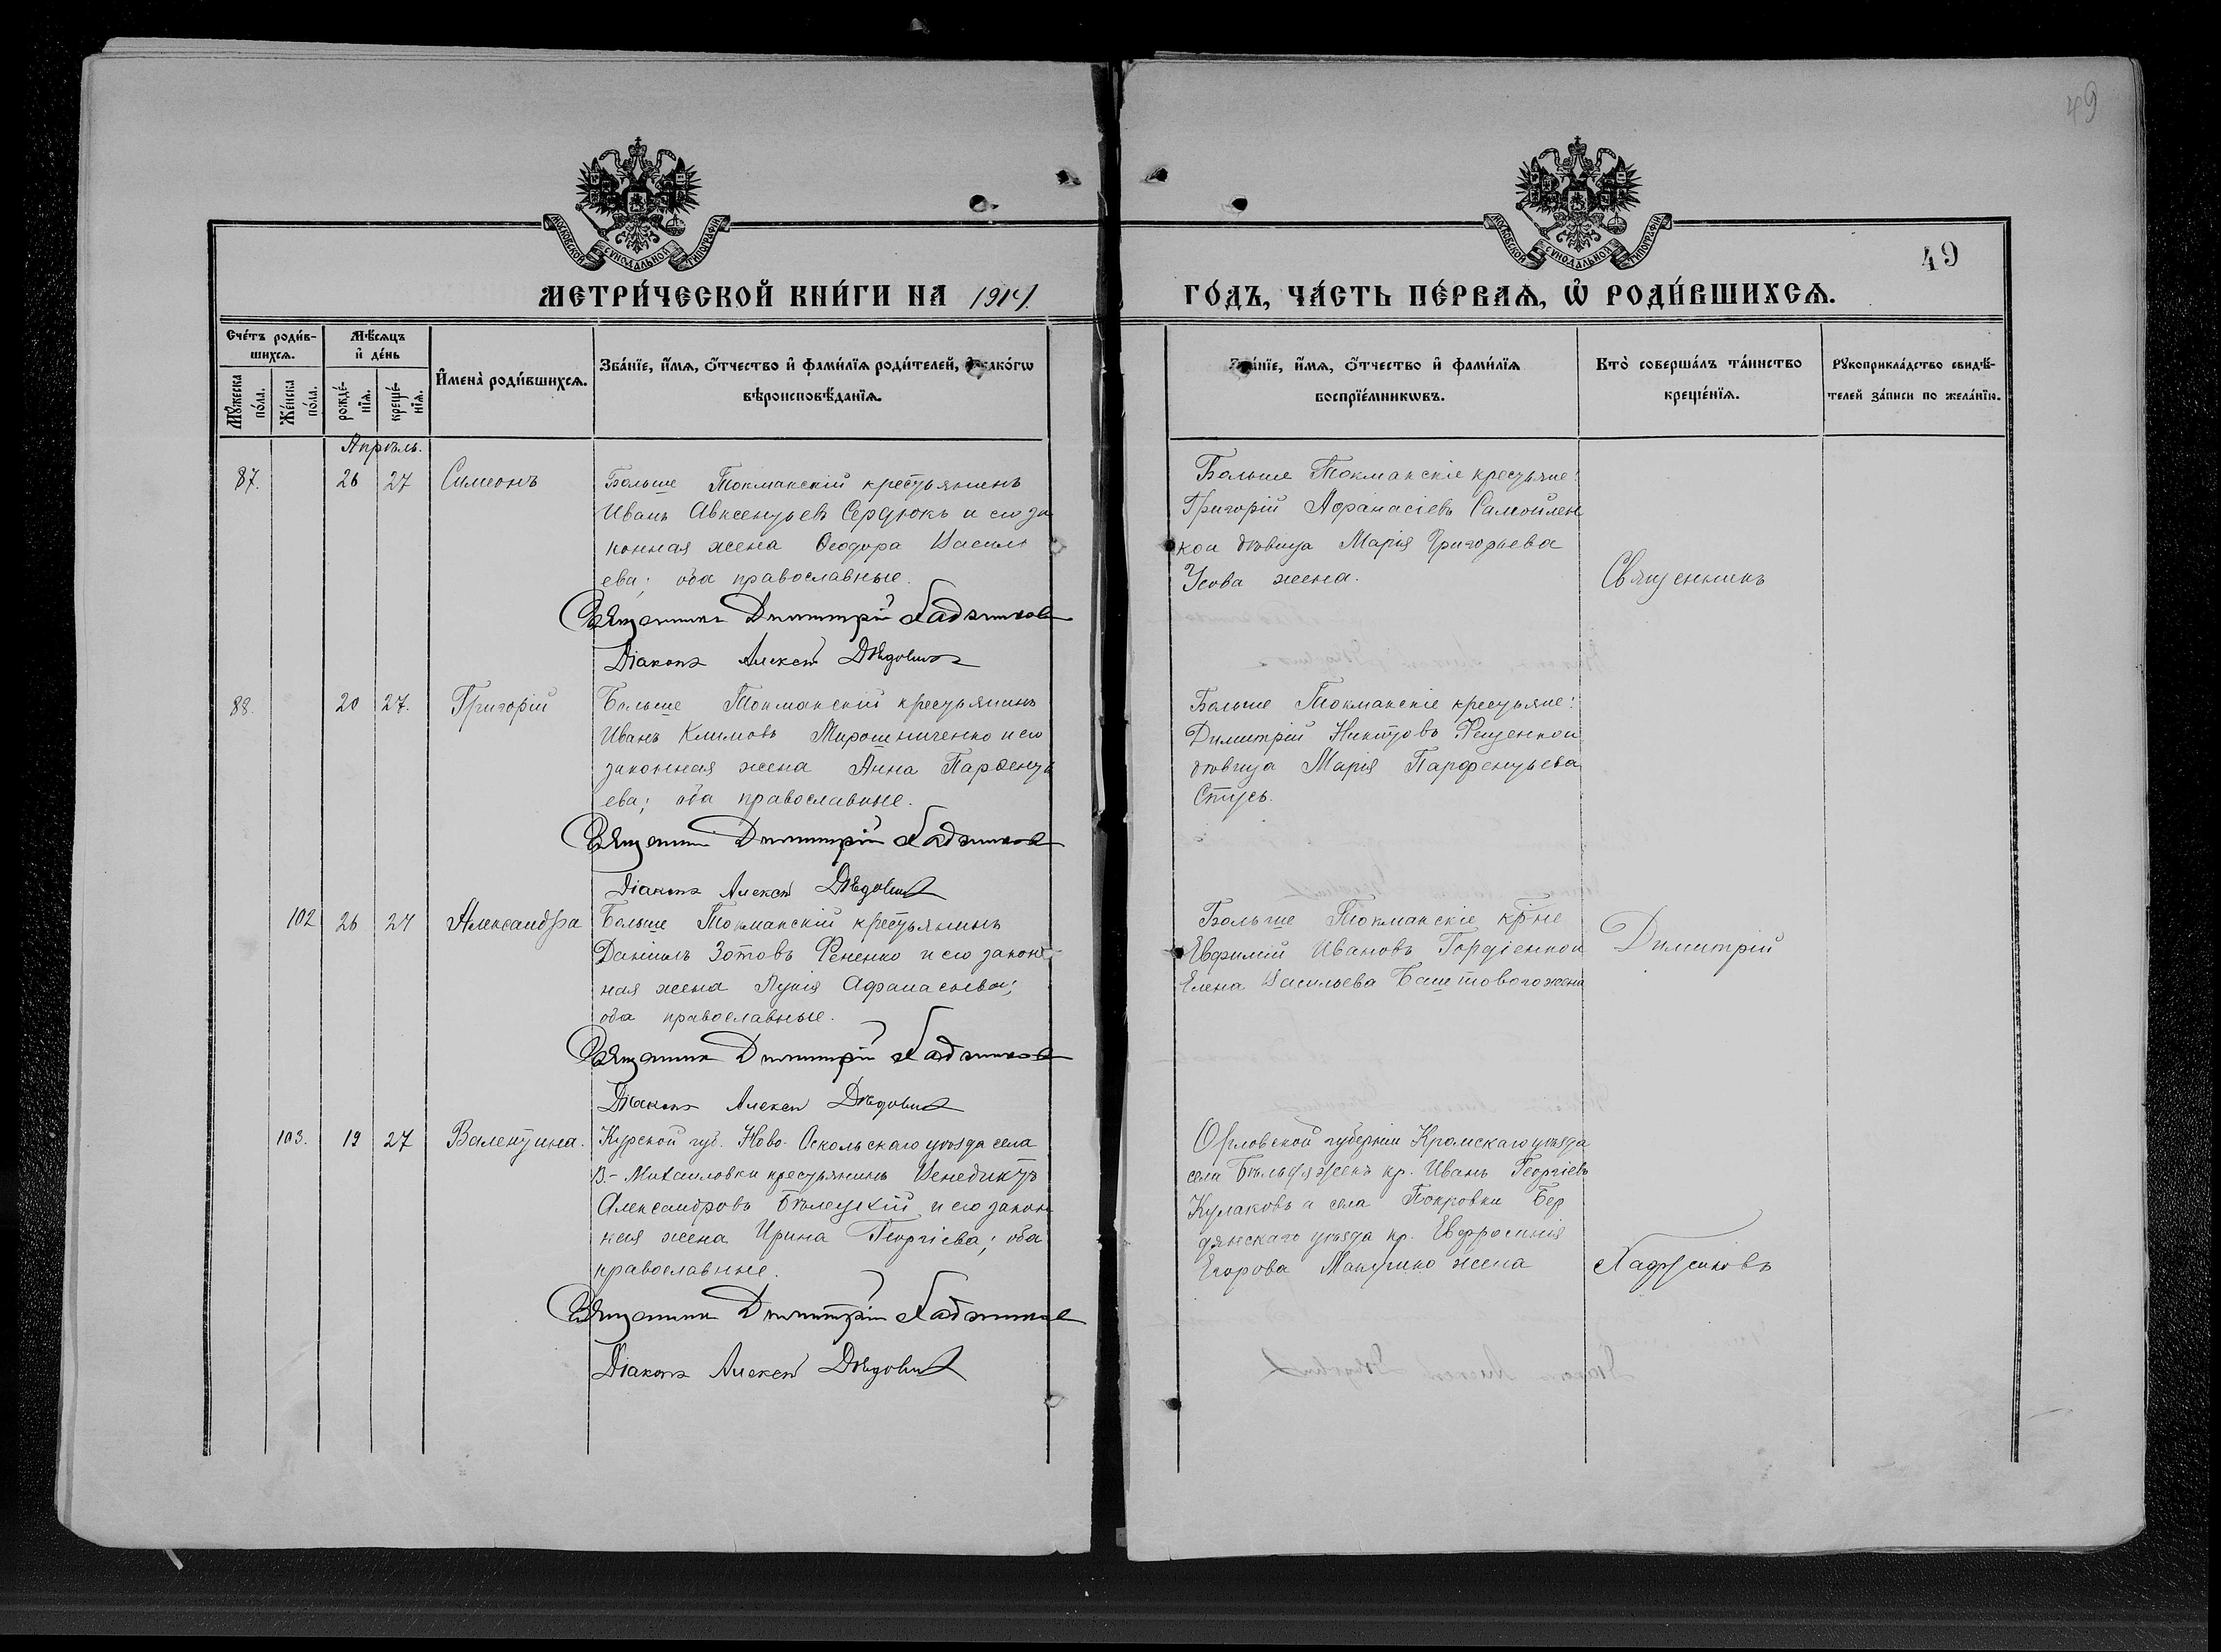 49
49
МОСКОВСКОЙ СѴНОДАЛЬНОЙ ТИПОГРАФІИ
МОСКОВСКОЙ СѴНОДАЛЬНОЙ ТИПОГРАФІИ
МЕТРИ́ЧЕСКОЙ КНИ́ГИ НА 1914.
ГО́ДЪ, ЧА́СТЬ ПЕ́РВАѦ, Ѡ҆ РОДИ́ВШИХСѦ.
Сче́тъ роди́в-
шихсѧ.
Мꙋ́жеска по́ла.
Же́нска по́ла.
Мѣ́сѧцъ
и҆ де́нь
рожде́-
нїѧ.
креще́-
нїѧ.
И҆мена̀ роди́вшихсѧ.
Зва́нїе, и҆́мѧ, ѻ҆́тчество и҆ фами́лїѧ роди́телей, и҆ како́гѡ
вѣроисповѣ́данїѧ.
Зва́нїе, и҆́мѧ, ѻ҆́тчество и҆ фами́лїѧ
воспрїе́мникѡвъ.
Кто̀ соверша́лъ та́инство
креще́нїѧ.
Рꙋкоприкла́дство свидѣ́-
телей за́писи по жела́нїю.
Апрѣль.
87.
26
27
Симеонъ
Больше Токмакскій крестьянинъ
Иванъ Авксентьевъ Сердюкъ и его за
конная жена Ѳеодора Василь
ева; оба православные.
Священникъ Димитрій Хаджиновъ
Діаконъ Алексѣй Дѣдовичъ
Больше Токмакскіе крестьяне:
Григорій Аѳанасіевъ Самойлен
ко и дѣвица Марія Григорьева
Усова жена.
Священникъ
88.
20
27.
Григорій
Больше Токмакскій крестьянинъ
Иванъ Климовъ Мирошниченко и его
законная жена Анна Парѳенть
ева; оба православные.
Священникъ Димитрій Хаджиновъ
Діаконъ Алексѣй Дѣдовичъ
Больше Токмакскіе крестьяне:
Димитрій Никитовъ Фещенко и
дѣвица Марія Парфентьева
Стусь.
102
26
27
Александра
Больше Токмакскій крестьянинъ
Даніилъ Зотовъ Фененко и его закон
ная жена Лукія Афанасьева;
оба православные.
Священникъ Димитрій Хаджиновъ
Діаконъ Алексѣй Дѣдовичъ
Больше Токмакскіе кр-не
Евфимій Ивановъ Гордіенко и
Елена Васильева Баштового жена
Димитрій
103.
19
27
Валентина.
Курской губ. Ново-Оскольскаго уѣзда села
В.-Михаиловки крестьянинъ Венедиктъ
Александровъ Бѣлецкій и его закон
ная жена Ирина Георгіева; оба
православные.
Священникъ Димитрій Хаджиновъ
Діаконъ Алексѣй Дѣдовичъ
Орловской губерніи Кромскаго уѣзда
села кр. Иванъ Георгіевъ
Кулаковъ и села Покровки Бер
дянскаго уѣзда кр. Евфросинія
Егорова жена
Хаджиновъ